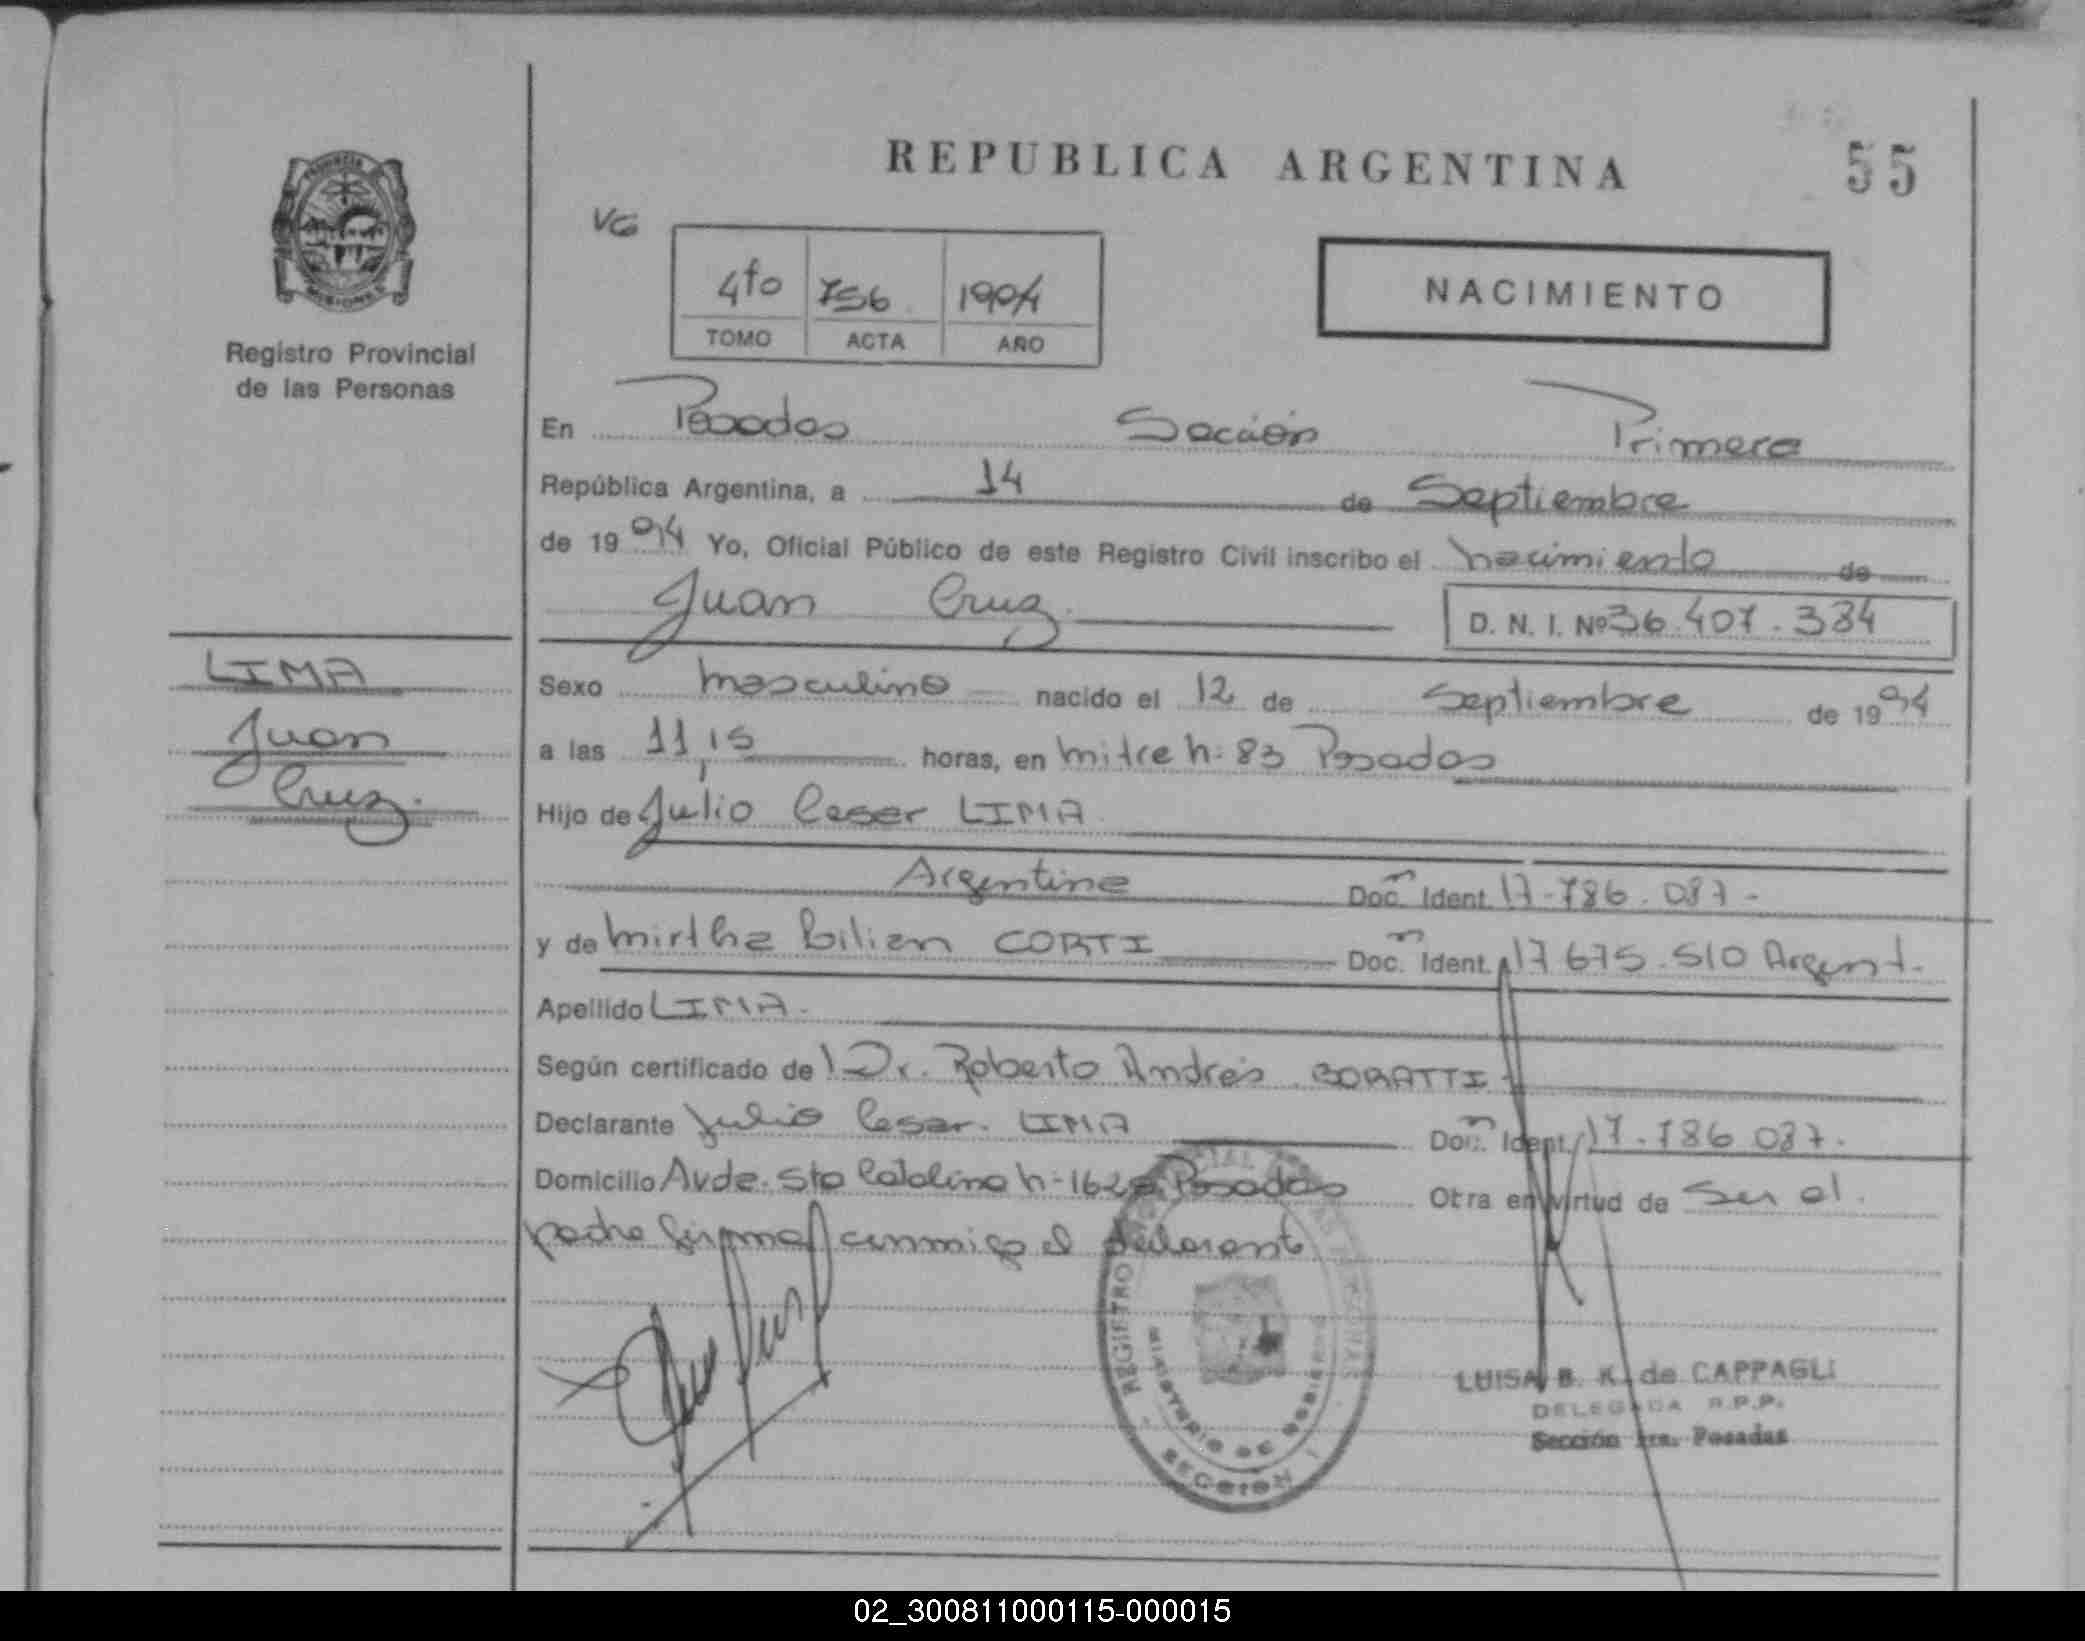 REPUBLICA ARGENTINA
55
VG
4to 756 1994
TOMO ACTA AÑO
NACIMIENTO
PROVINCIA
MISIONES
Registro Provincial
de las Personas
En Posadas Sección Primera
República Argentina, a 14 de Septiembre
de 1994 Yo, Oficial Público de este Registro Civil inscribo el nacimiento de
Juan Cruz D. N. I. Nº 36.407.384
LIMA
Juan
Cruz.
Sexo masculino nacido el 12 de Septiembre de 1994
a las 11,15 horas, en mitre n: 83 Posadas
Hijo de Julio Cesar LIMA
Argentina Doc. Ident. 17.786.087.-
y de mirtha Lilian CORTI Doc. Ident. 17 675.510 Argent.
Apellido LIMA.
Según certificado del Dr. Roberto Andrés BORATTI
Declarante Julio Cesar. LIMA Doc. Ident. 17.786 087.
Domicilio Avda. Sta Catalina n: Posadas Otra en virtud de Ser el.
padre firma conmigo el declarante
REGISTRO PROVINCIAL DE LAS PERSONAS
MINISTERIO DE GOBIERNO
SECCION 1
LUISA B. K. de CAPPAGLI
DELEGADA R.P.P.
Sección 1ra. Posadas
02_300811000115-000015